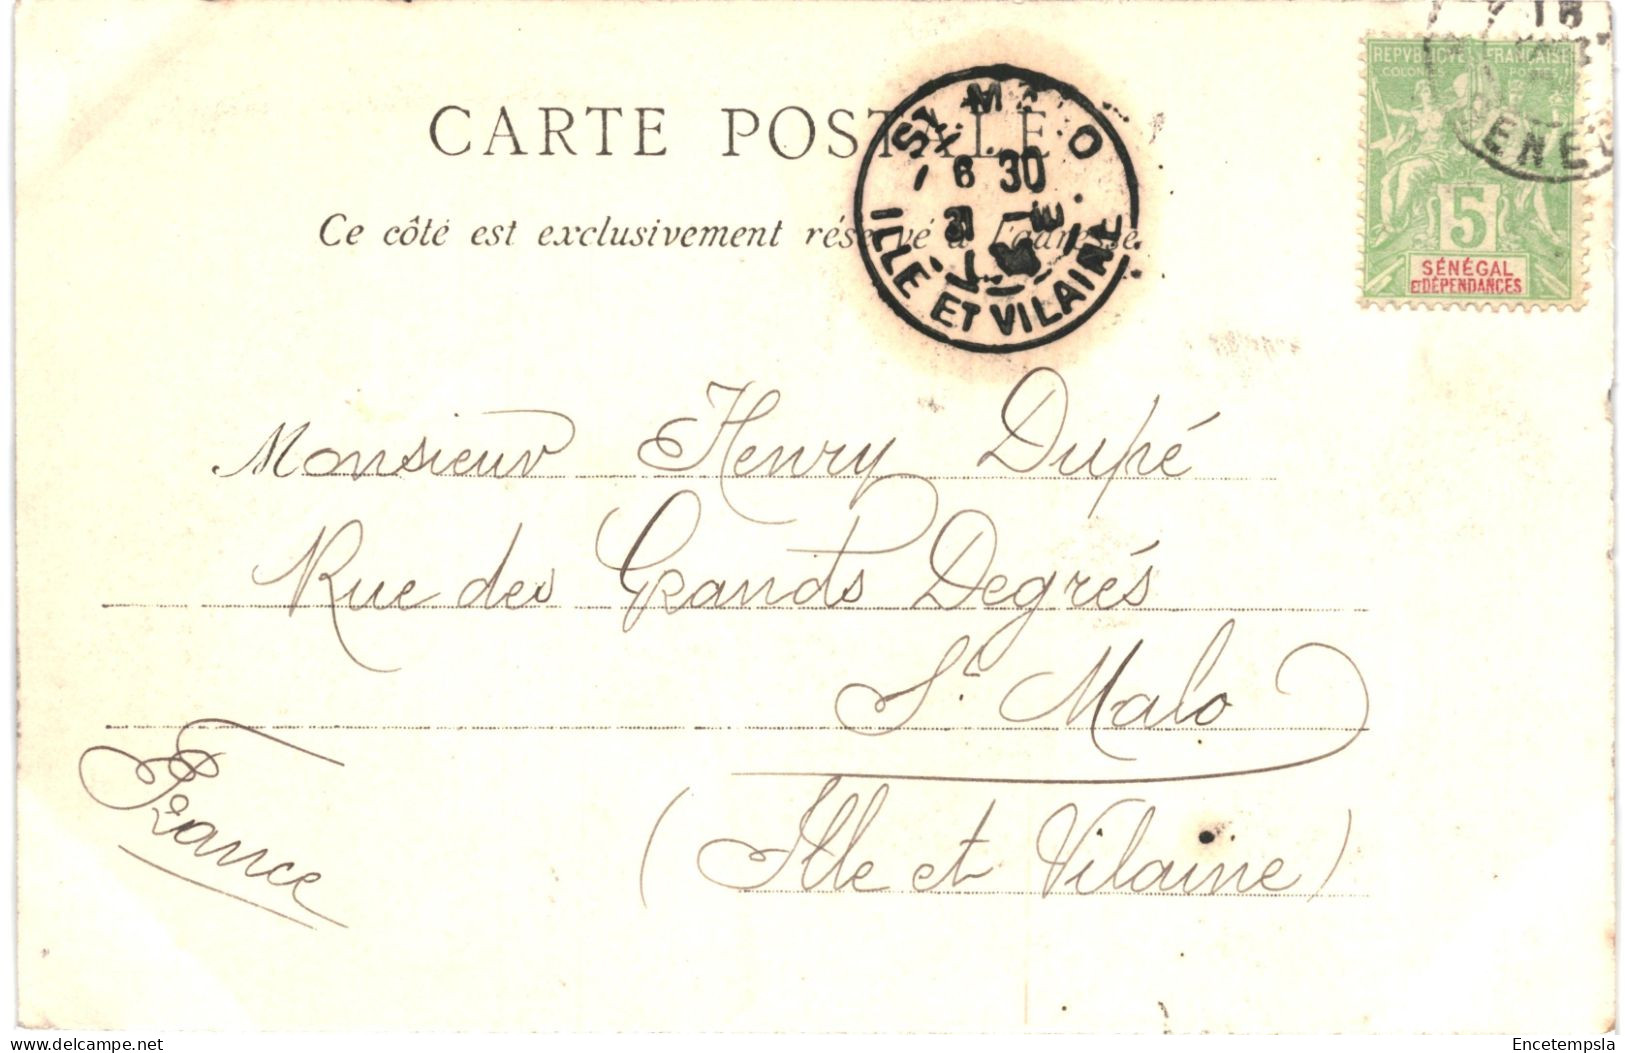 CARTE POSTALE
Ce côté est exclusivement réservé à l'adresse
ILLE ET VILAINE
REPUBLIQUE FRANÇAISE
COLONIES POSTES
5
SÉNÉGAL
ET DÉPENDANCES
Monsieur Henry Dupé
Rue des Grands Degrés
St. Malo
(Ille et Vilaine)
France
Encetempsla